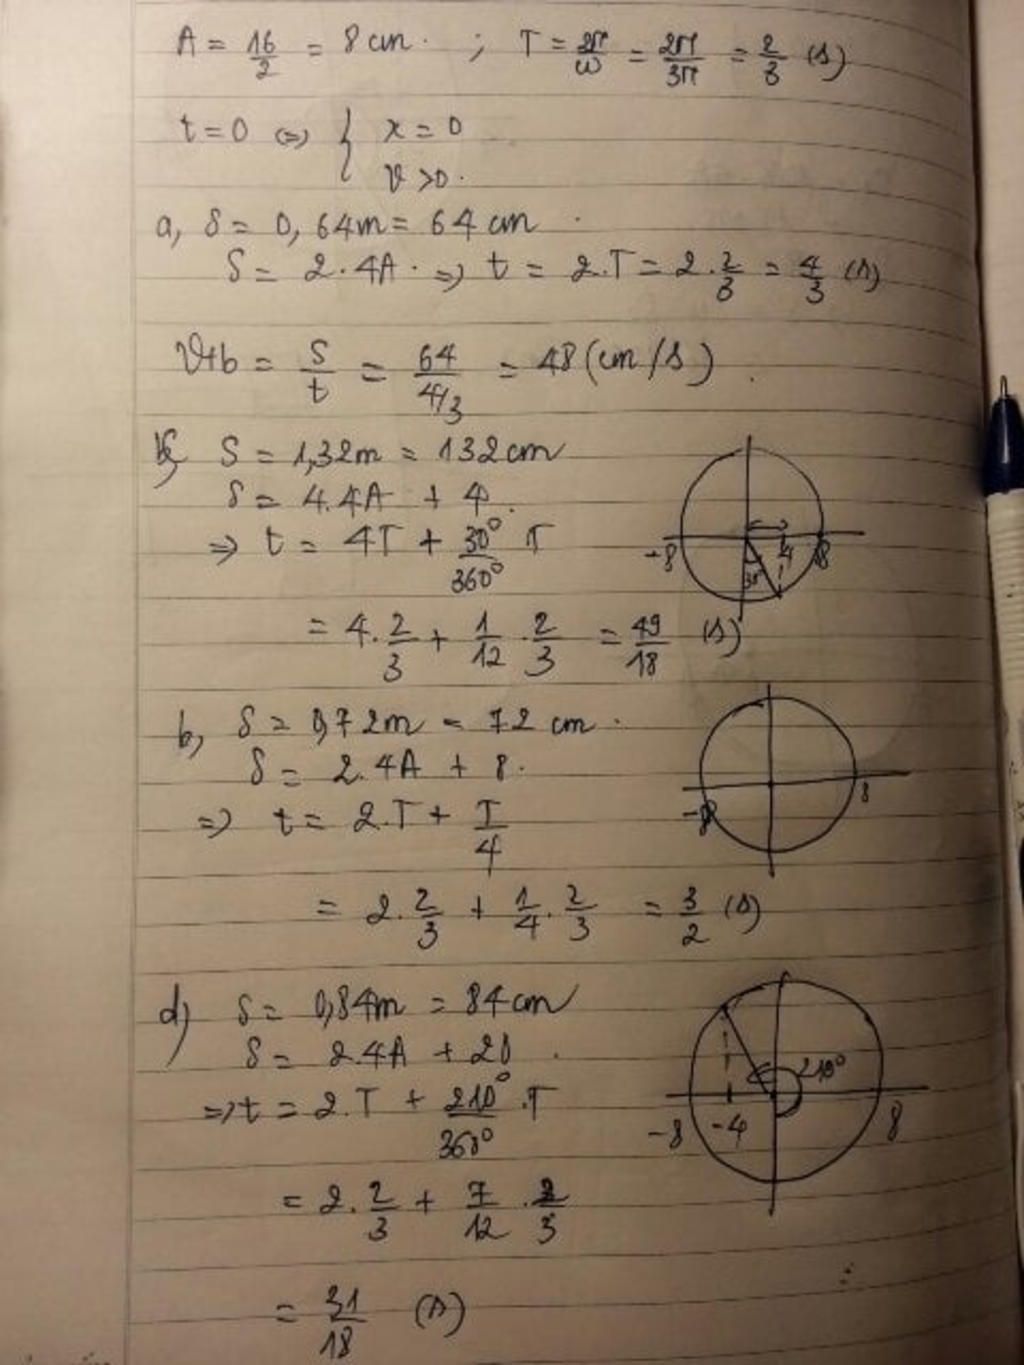 A = 16/2 = 8 cm. ; T = 2π/ω = 2π/3π = 2/3 (s)
t = 0 (=) { x = 0
v > 0.
a, S = 0,64m = 64 cm
S = 2.4A. => t = 2.T = 2.2/3 = 4/3 (s)
vtb = S/t = 64/4/3 = 48 (cm/s).
S = 1,32m = 132cm
S = 4.4A + 4.
=> t = 4T + 30°/360° T
-8 4 8
30°
= 4.2/3 + 1/12.2/3 = 49/18 (s)
b, S = 0,72m = 72 cm.
S = 2.4A + 8.
-8 8
=> t = 2.T + T/4
= 2.2/3 + 1/4.2/3 = 3/2 (s)
d) S = 0,84m = 84cm
S = 2.4A + 20.
210°
=> t = 2.T + 210°/360°.T
-8 -4 8
= 2.2/3 + 7/12.2/3
= 31/18 (s)